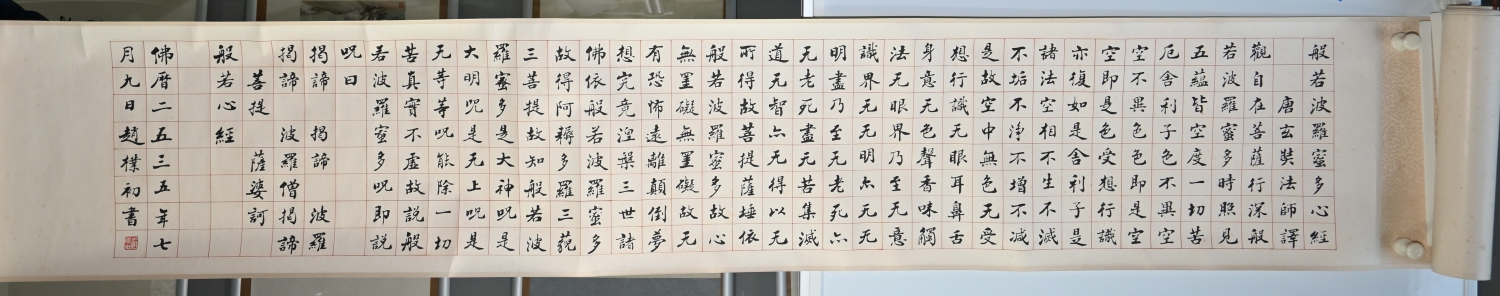 般若波羅蜜多心經
唐玄奘法師譯
觀自在菩薩行深般
若波羅蜜多時照見
五蘊皆空度一切苦
厄舍利子色不異空
空不異色色即是空
空即是色受想行識
亦復如是舍利子是
諸法空相不生不滅
不垢不淨不增不減
是故空中無色无受
想行識无眼耳鼻舌
身意无色聲香味觸
法无眼界乃至无意
識界无无明亦无无
明盡乃至无老死亦
无老死盡无苦集滅
道无智亦无得以无
所得故菩提薩埵依
般若波羅蜜多故心
無罣礙無罣礙故无
有恐怖遠離顛倒夢
想究竟涅槃三世諸
佛依般若波羅蜜多
故得阿耨多羅三藐
三菩提故知般若波
羅蜜多是大神咒是
大明咒是无上咒是
无等等咒能除一切
苦真實不虛故說般
若波羅蜜多咒即說
咒曰
揭諦 揭諦 波羅
揭諦 波羅僧揭諦
菩提 薩婆訶
般若心經
佛曆二五三五年七
月九日趙樸初書